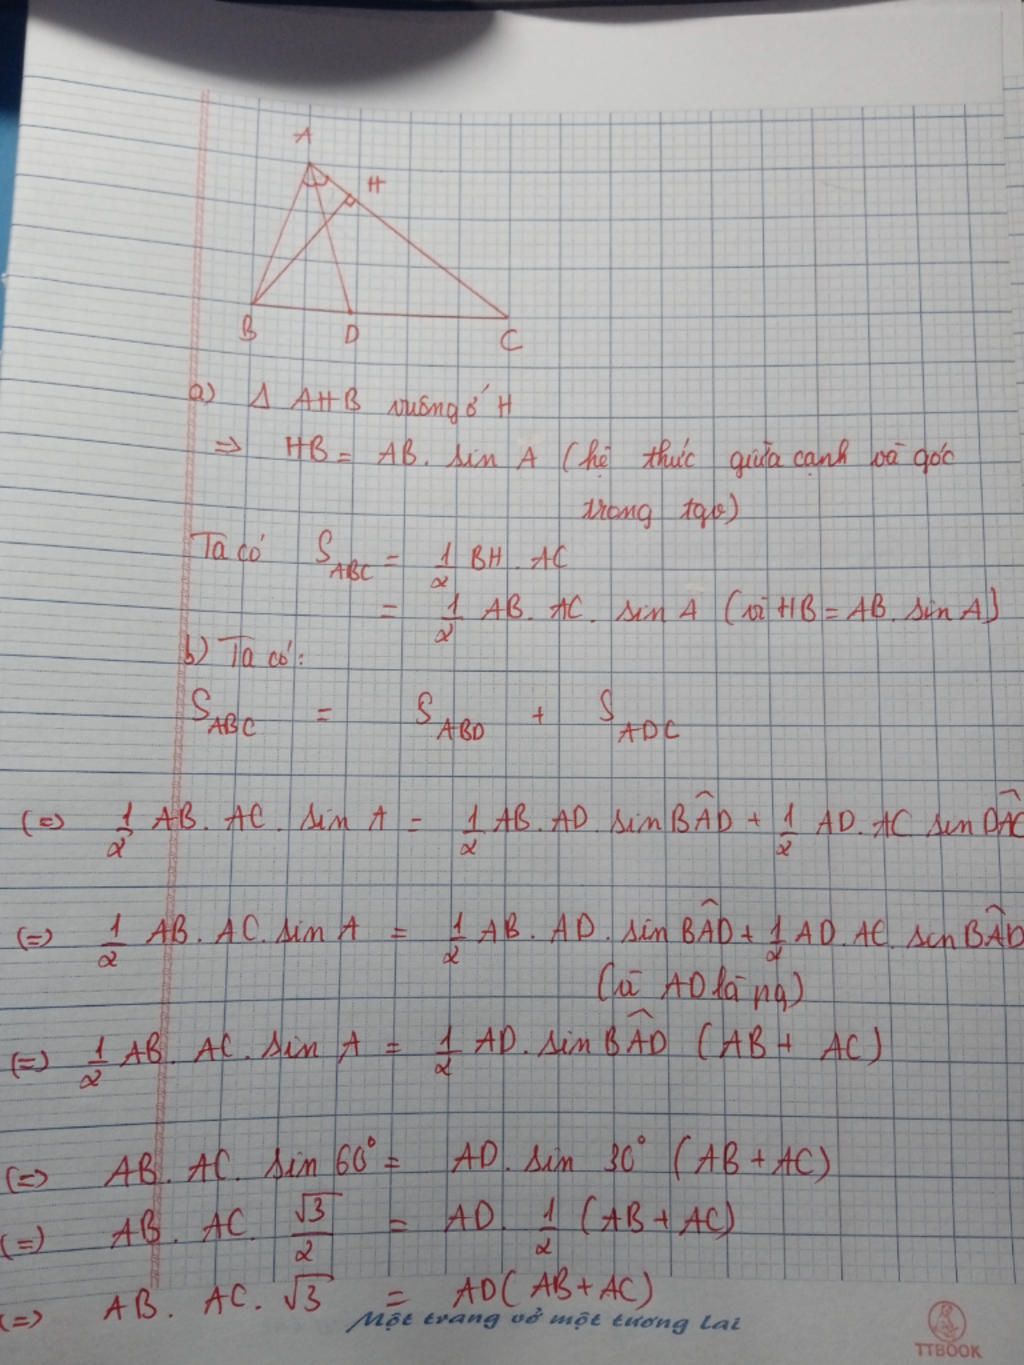 A
H
B
D
C
a) Δ AHB vuông ở H
⇒ HB = AB. sin A (hệ thức giữa cạnh và góc
trong tgv)
Ta có S_ABC = 1/2 BH. AC
= 1/2 AB. AC. sin A (vì HB = AB. sin A)
b) Ta có:
S_ABC = S_ABD + S_ADC
(=) 1/2 AB. AC. sin A = 1/2 AB. AD. sin BÂD + 1/2 AD. AC sin DÂC
(=) 1/2 AB. AC. sin A = 1/2 AB. AD. sin BÂD + 1/2 AD. AC. sin BÂD
(vì AD là pg)
(=) 1/2 AB. AC. sin A = 1/2 AD. sin BÂD (AB + AC)
(=) AB. AC. sin 60° = AD. sin 30° (AB + AC)
(=) AB. AC. √3/2 = AD. 1/2 (AB + AC)
(=) AB. AC. √3 = AD (AB + AC)
Một trang vở một tương lai
TTBOOK